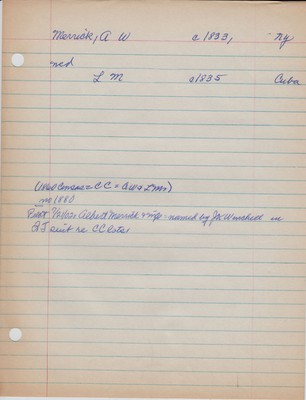 Merrick, A W a 1833, Ny
md
L M a 1835 Cuba
(1860 Census = CC = A W & L M)
no 1880
Albert Merrick & wife named by J W Winchell in
suit re CC lots